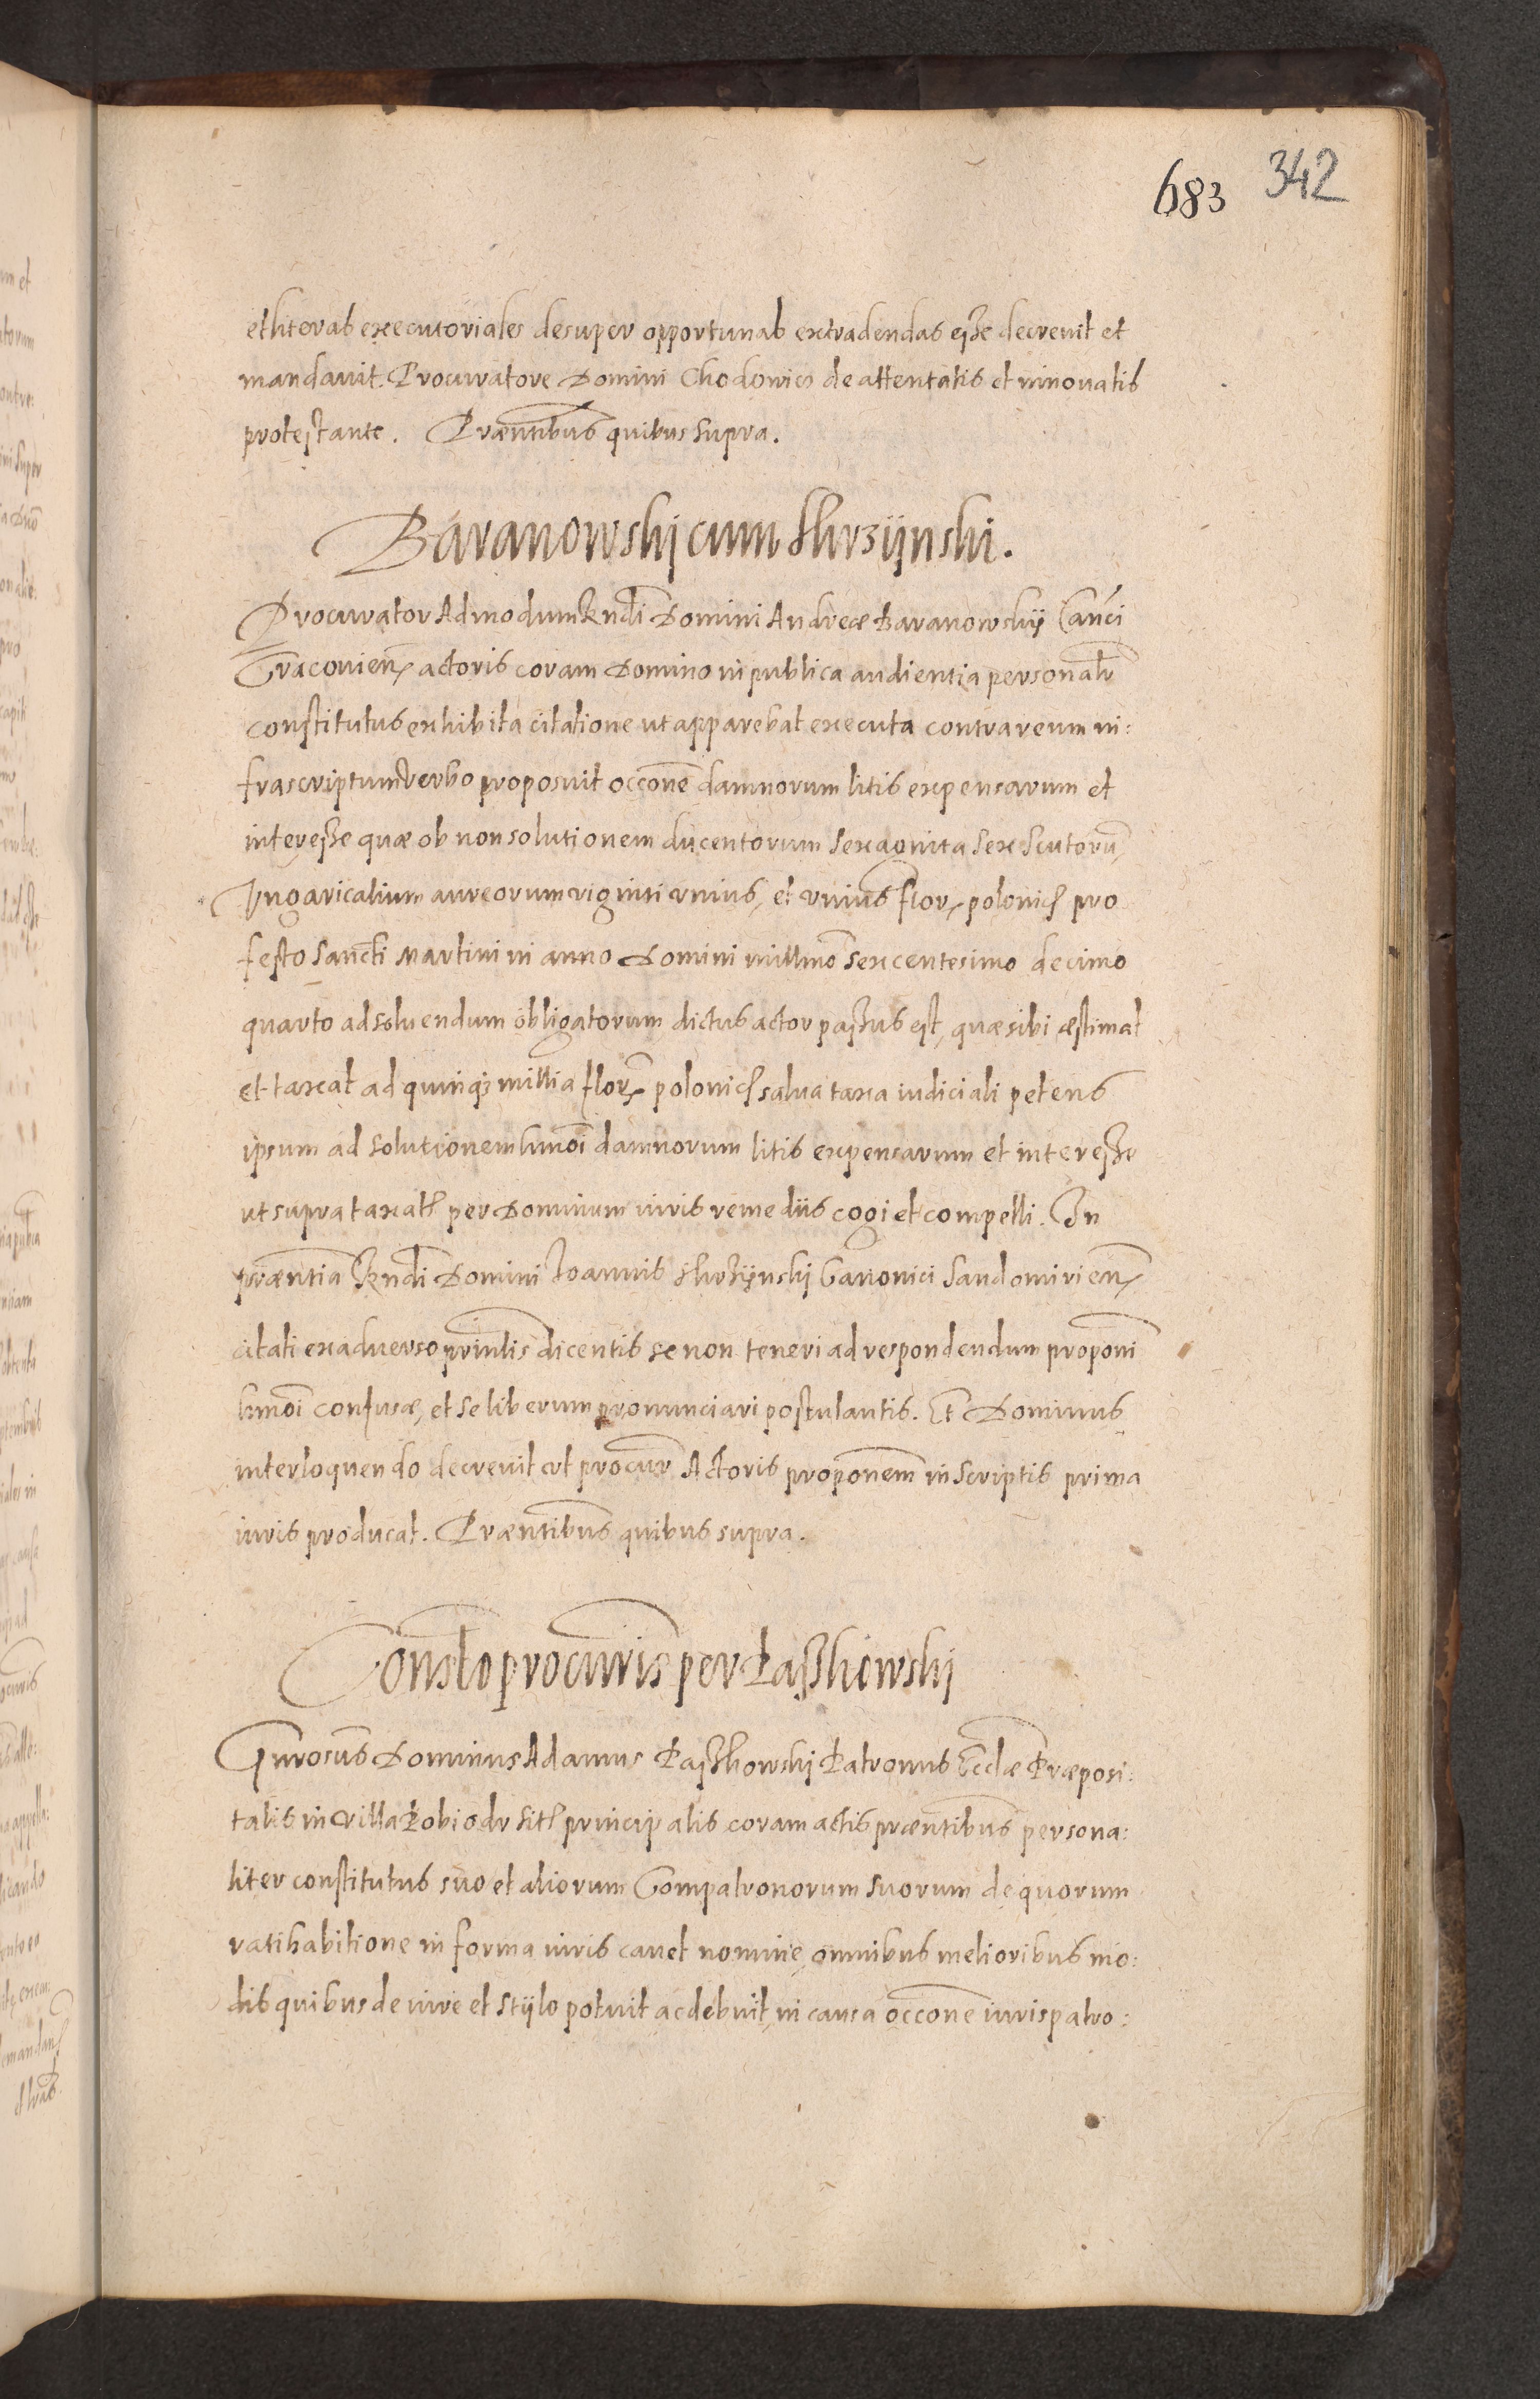 683 342
et literas executoriales desuper opportunas extradendas esse decrevit et
mandavit. Procuratore Domini Chodowicz de attentatis et innouatis
protestante. Præntibus quibus supra.
Baranowskij cum Skrzÿnski.
Procurator Admodum Rndi Domini Andreæ Baranowskÿ Canci
Cracouien actoris coram Domino in publica audientia personalr
constitutus exhibita citatione ut apparebat executa contra reum in:
frascriptum verbo proposuit occone damnorum litis expensarum et
interesse quæ ob non solutionem ducentorum sexaginta sex scutoru
Vngaricalium aureorum viginti vnius, et vnius flor polonic pro
festo Sancti Martini in anno Domini millmo sexcentesimo decimo
quarto ad soluendum obligatorum dictus actor passus est, quæ sibi æstimat
et taxat ad quinq3 millia flor polonic salua taxa iudiciali petens
ipsum ad solutionem hmoi damnorum litis expensarum et interesse
ut supra taxat per Dominum iuris remediis cogi et compelli. In
præntia Rndi Domini Joannis Skrzÿnskij Canonici Sandomirien
citati ex aduerso prinlis dicentis se non teneri ad respondendum proponi
hmoi confusæ, et se liberum pronunciari postulantis. Et Dominus
interloquendo decreuit ut procur Actoris proponem in scriptis prima
iuris producat. Præntibus quibus supra.
Constto procuris per Paszkowskij
Gnrosus Dominus Adamus Paszkowskij Patronus Ecclæ Præposi:
talis in villa sit principalis coram actis præntibus persona:
liter constitutus suo et aliorum Compatronorum suorum de quorum
ratihabitione in forma iuris cauet nomine, omnibus melioribus mo:
dis quibus de iure et stÿlo potuit ac debuit, in causa occone iurispatro: